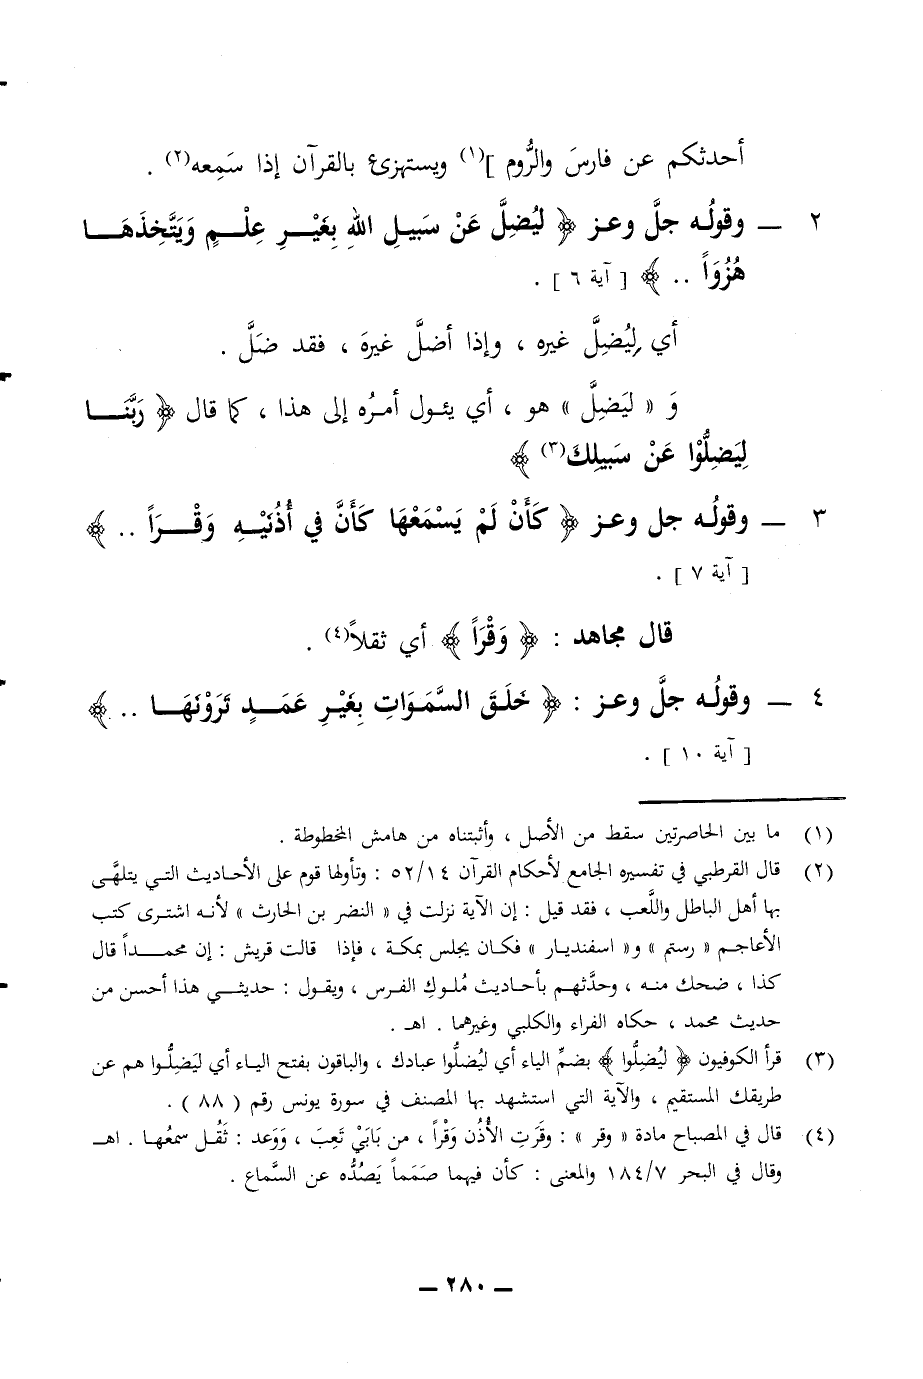 أحدثكم عن فارسَ والرُّوم ](١) ويستهزئ بالقرآن إذا سَمِعه(٢) .
٢ ــ وقولُه جلَّ وعز ﴿ لِيُضِلَّ عَنْ سَبِيلِ اللهِ بِغَيْرِ عِلْمٍ وَيَتَّخِذَهَا
هُزُوَاً .. ﴾ [ آية ٦ ] .
أي لِيُضِلَّ غيره ، وإذا أضلَّ غيرهَ ، فقد ضَلَّ .
وَ « لِيَضِلَّ » هو ، أي يئول أمرُه إلى هذا ، كما قال ﴿ رَبَّنَا
لِيَضِلُّوْا عَنْ سَبِيلِكَ(٣) ﴾
٣ ــ وقولُه جل وعز ﴿ كَأَنْ لَمْ يَسْمَعْهَا كَأَنَّ فِي أُذُنَيْهِ وَقْرَاً .. ﴾
[ آية ٧ ] .
قال مجاهد : ﴿ وَقْرَاً ﴾ أي ثقلاً(٤) .
٤ ــ وقولُه جلَّ وعز : ﴿ خَلَقَ السَّمَوَاتِ بِغَيْرِ عَمَدٍ تَرَوْنَهَا .. ﴾
[ آية ١٠ ] .
(١) ما بين الحاصرتين سقط من الأصل ، وأثبتناه من هامش المخطوطة .
(٢) قال القرطبي في تفسيره الجامع لأحكام القرآن ٥٢/١٤ : وتأولها قوم على الأحاديث التي يتلهَّى
بها أهل الباطل واللَّعب ، فقد قيل : إن الآية نزلت في « النضر بن الحارث » لأنه اشترى كتب
الأعاجم « رستم » و« اسفنديار » فكان يجلس بمكة ، فإذا قالت قريش : إن محمداً قال
كذا ، ضحك منه ، وحدَّثهم بأحاديث مُلوكِ الفرس ، ويقول : حديثي هذا أحسن من
حديث محمد ، حكاه الفراء والكلبي وغيرهما . اهـ .
(٣) قرأ الكوفيون ﴿ لِيُضِلُّوا ﴾ بضمِّ الياء أي لِيُضلُّوا عبادك ، والباقون بفتح الياء أي لَيَضِلُّوا هم عن
طريقك المستقيم ، والآية التي استشهد بها المصنف في سورة يونس رقم ( ٨٨ ) .
(٤) قال في المصباح مادة « وقر » : وقَرَتِ الأُذُن وَقْراً ، من بَابَيْ تَعِبَ ، وَوَعد : ثَقُل سمعُها . اهـ
وقال في البحر ١٨٤/٧ والمعنى : كأن فيهما صَمَماً يَصُدُّه عن السَّماع .
ــ ٢٨٠ ــ